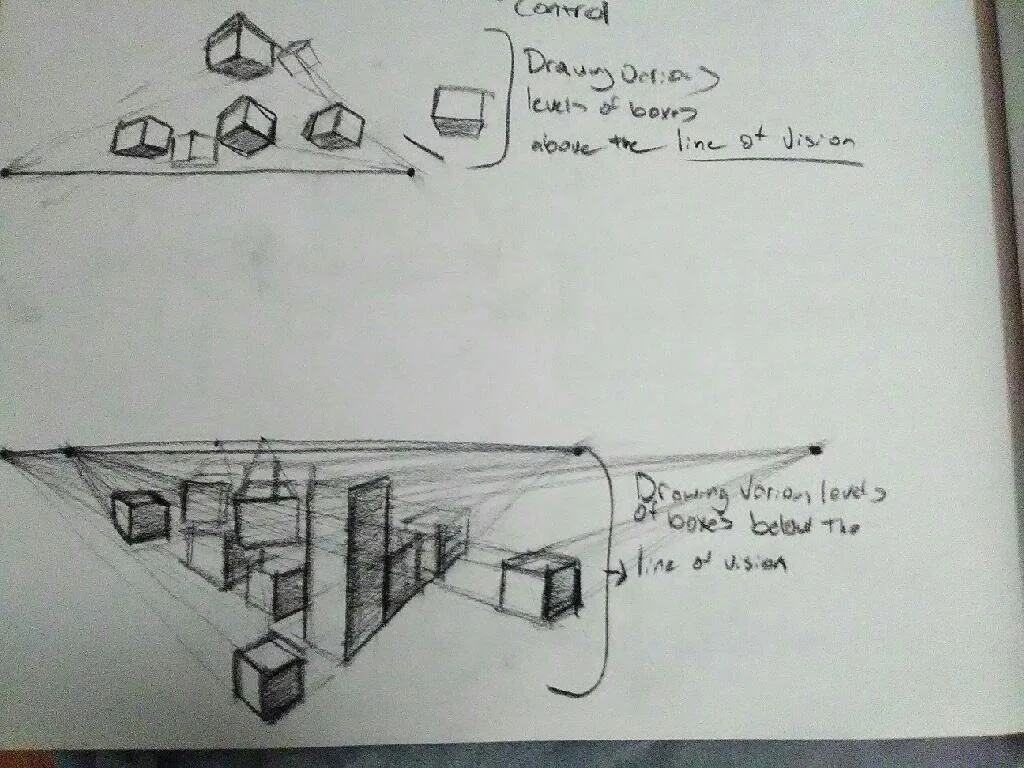 Control
Drawing Various
levels of boxes
above the line of vision
Drawing Various levels
of boxes below the
line of vision